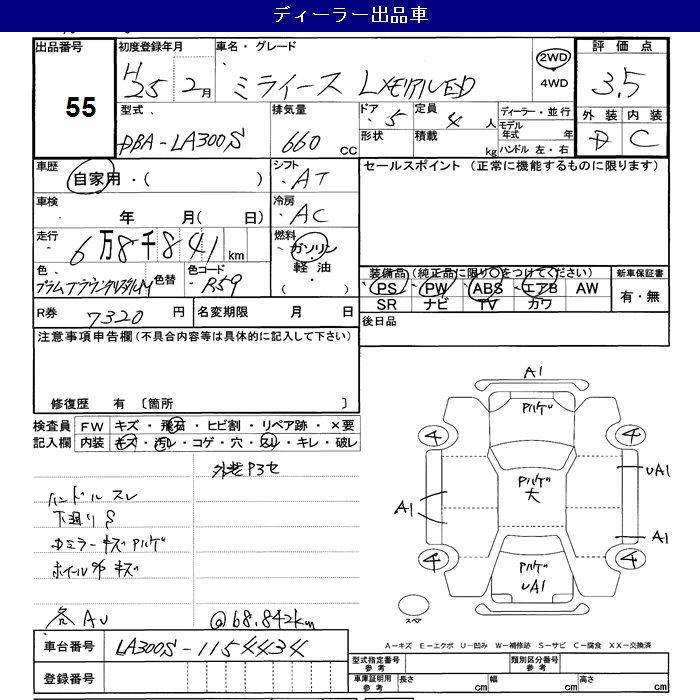 ディーラー出品車
出品番号 初度登録年月 車名・グレード 評価点
55
H25 2月 ミライース 2WD 4WD 3.5
外装 内装
D C
型式 排気量 ドア 5 定員 4 人 ディーラー・並行
モデル年式 年
DBA-LA300S 660 CC 形状 積載 kg ハンドル 左・右
車歴 シフト セールスポイント (正常に機能するものに限ります)
自家用・( ) AT
車検 年 月( 日) 冷房 AC
走行 6万8千841km 燃料 ガソリン・軽油・( )
色 色替 色コード R59
装備品(純正品に限り○をつけてください) 新車保証書
PS PW ABS エアB AW 有・無
SR ナビ TV カワ
R券 7320 円 名変期限 月 日
後日品
注意事項申告欄(不具合内容等は具体的に記入して下さい)
修復歴 有 〔箇所 〕
検査員 FW キズ・飛石・ヒビ割・リペア跡・×要
記入欄 内装 キズ・汚レ・コゲ・穴・スレ・キレ・破レ
外装P3セ
ハンドルスレ
下廻りS
ドミラーキズPハゲ
ホイールキズ
各AU @68.842km
A1
Pハゲ
4 4
UA1
Pハゲ大
A1
A1
4 4
Pハゲ
UA1
スペア
A-キズ E-エクボ U-凹み W-補修跡 S-サビ C-腐食 XX-交換済
車台番号 LA300S-1154434
登録番号
型式指定番号 参考 類別区分番号 参考
車庫証明用 参考 長さ cm 幅 cm 高さ cm